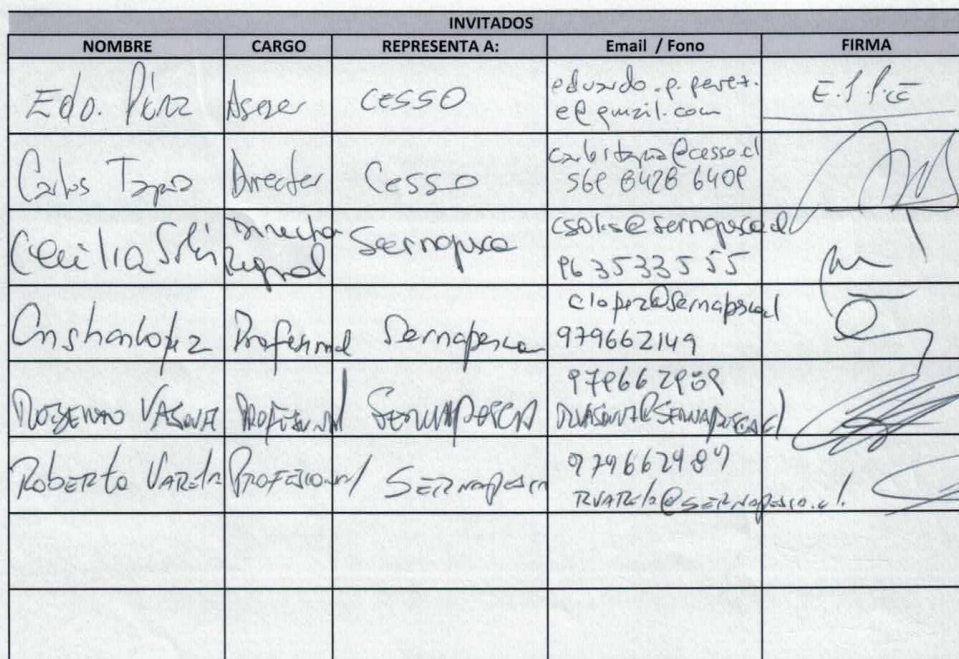 INVITADOS
NOMBRE CARGO REPRESENTA A: Email / Fono FIRMA
Edo. Pérez Asesor CESSO eduardo.p.perez.
e@gmail.com
Carlos Tapia Director CESSO carlostapia@cesso.cl
Cecilia Solis Directora Sernapesca csolis@sernapesca.cl
Regional 96 3533555
Cristian Lopez Profesional Sernapesca clopez@sernapesca.cl
979662149
PROFESIONAL SERNAPESCA
Roberto Varela PROFESIONAL SERNAPESCA 979662989
RVARELA@SERNAPESCA.cl